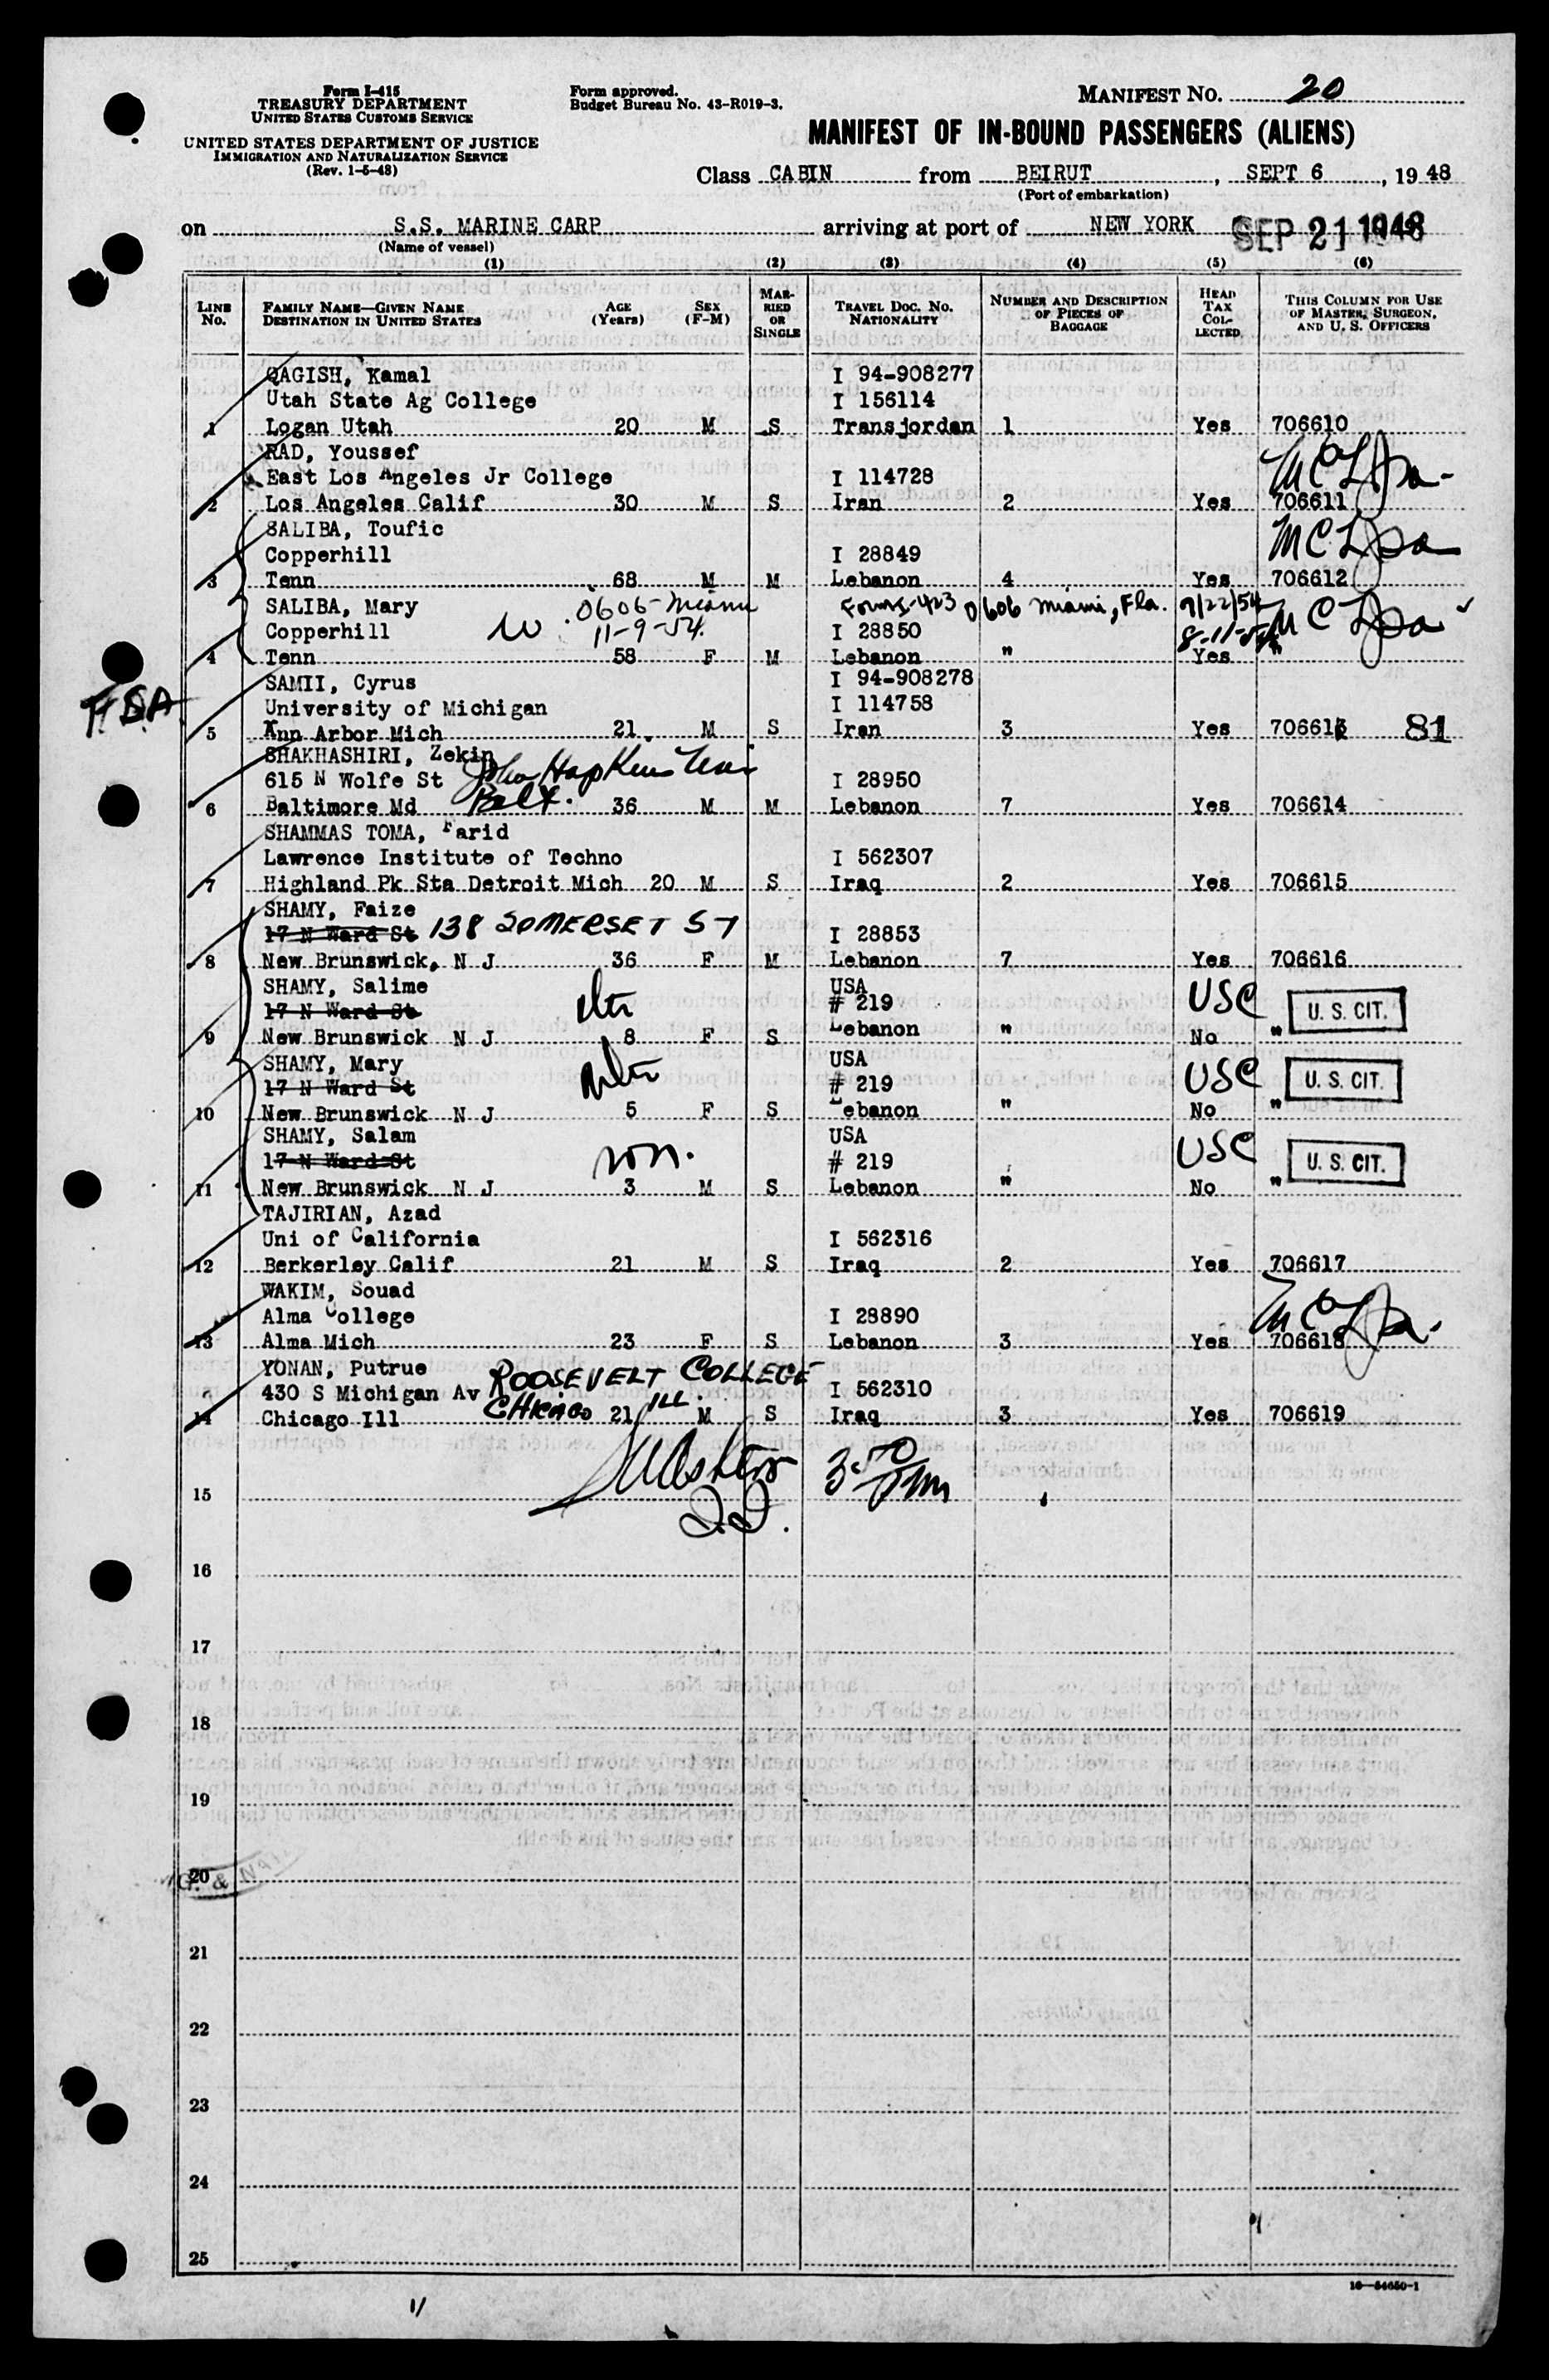 Form I-415
TREASURY DEPARTMENT
UNITED STATES CUSTOMS SERVICE
UNITED STATES DEPARTMENT OF JUSTICE
IMMIGRATION AND NATURALIZATION SERVICE
(Rev. 1-5-48)
Form approved.
Budget Bureau No. 43-R019-3.
MANIFEST NO. 20
MANIFEST OF IN-BOUND PASSENGERS (ALIENS)
Class CABIN from BEIRUT, SEPT 6, 19 48
(Port of embarkation)
on S.S. MARINE CARP arriving at port of NEW YORK SEP 21 1948
(Name of vessel)
(1) (2) (3) (4) (5) (6)
LINE No. FAMILY NAME—GIVEN NAME DESTINATION IN UNITED STATES AGE (Years) SEX (F-M) MARRIED OR SINGLE TRAVEL DOC. NO. NATIONALITY NUMBER AND DESCRIPTION OF PIECES OF BAGGAGE HEAD TAX COLLECTED THIS COLUMN FOR USE OF MASTER, SURGEON, AND U. S. OFFICERS
QAGISH, Kamal I 94-908277
Utah State Ag College I 156114
1 Logan Utah 20 M S Transjordan 1 Yes 706610
RAD, Youssef
East Los Angeles Jr College I 114728
2 Los Angeles Calif 30 M S Iran 2 Yes 706611
SALIBA, Toufic
Copperhill I 28849
3 Tenn 68 M M Lebanon 4 Yes 706612
SALIBA, Mary 0606-Miami 0606 Miami, Fla. 9/22/54
Copperhill 11-9-54. I 28850
4 Tenn 58 F M Lebanon " Yes "
SAMII, Cyrus I 94-908278
University of Michigan I 114758
5 Ann Arbor Mich 21 M S Iran 3 Yes 706613 81
SHAKHASHIRI, Zekin
615 N Wolfe St John Hopkins Univ I 28950
6 Baltimore Md Balt. 36 M M Lebanon 7 Yes 706614
SHAMMAS TOMA, Farid
Lawrence Institute of Techno I 562307
7 Highland Pk Sta Detroit Mich 20 M S Iraq 2 Yes 706615
SHAMY, Faize
17 N Ward St 138 SOMERSET ST I 28853
8 New Brunswick, N J 36 F M Lebanon 7 Yes 706616
SHAMY, Salime USA
17 N Ward St dtr # 219 USC U. S. CIT.
9 New Brunswick N J 8 F S Lebanon " No "
SHAMY, Mary USA
17 N Ward St dtr # 219 USC U. S. CIT.
10 New Brunswick N J 5 F S Lebanon " No "
SHAMY, Salam USA
17 N Ward St son. # 219 USC U. S. CIT.
11 New Brunswick N J 3 M S Lebanon " No "
TAJIRIAN, Azad
Uni of California I 562316
12 Berkerley Calif 21 M S Iraq 2 Yes 706617
WAKIM, Souad
Alma College I 28890
13 Alma Mich 23 F S Lebanon 3 Yes 706618
YONAN, Putrue ROOSEVELT COLLEGE
430 S Michigan Av CHICAGO ILL. I 562310
14 Chicago Ill 21 M S Iraq 3 Yes 706619
15
16
17
18
19
20
21
22
23
24
25
16—54650-1